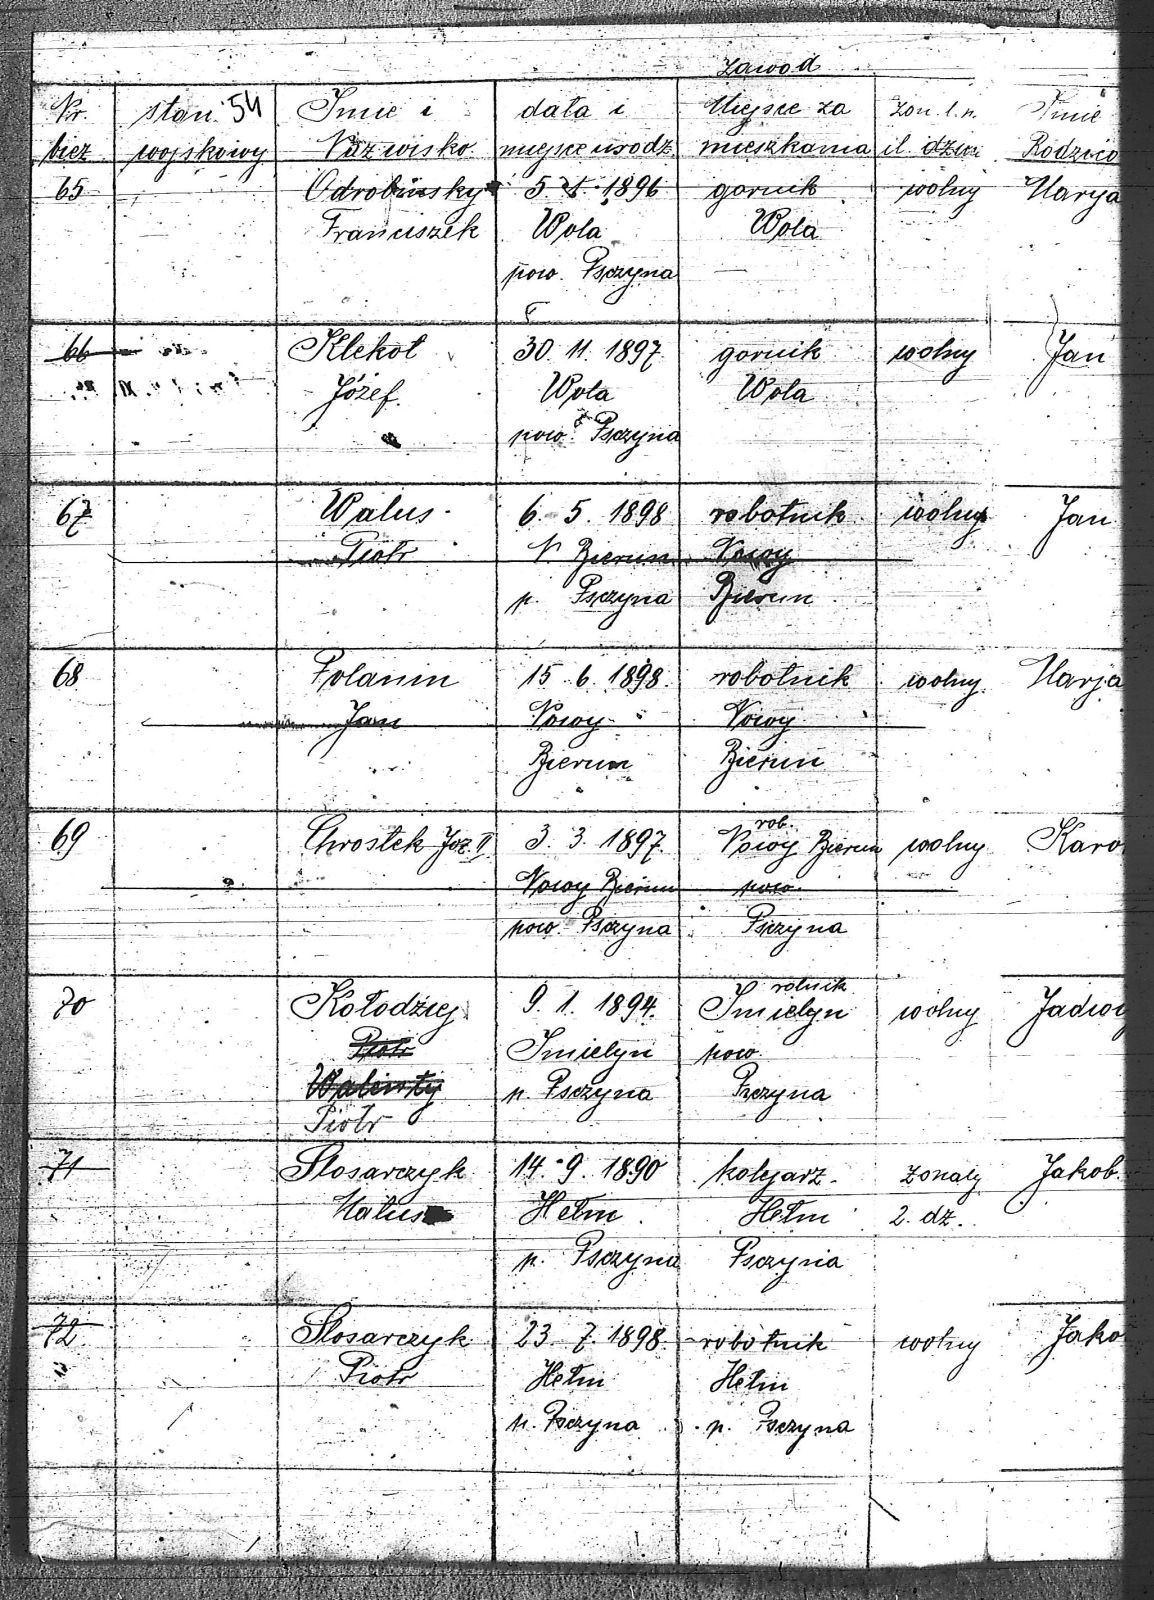 zawod
Nr. stan 54 Imie i data i Miejsce za żon. l. n. Imie
bież wojskowy Nazwisko miejsce urodz. mieszkania il dzieci Rodzico
65 Odrobinsky 5 1896 gornik wolny Marya
Franciszek Wola Wola
pow. Psczyna
66 Klekot 30. 11. 1897 gornik wolny Jan
Józef Wola Wola
pow. Psczyna
67 Walus 6. 5. 1898 robotnik wolny Jan
Piotr N Bierun Nowy
p. Psczyna Bierun
68 Polanin 15. 6. 1898. robotnik wolny Marja
Jan Nowy Nowy
Bierun Bierun
rob.
69 Chrostek Joz. II 3. 3. 1897. Nowy Bierun wolny Karo
Nowy Bierun pow.
pow. Psczyna Psczyna
rolnik
70 Kołodziej 9. 1. 1894. Imielyn wolny Jadwig
Piotr Imielyn pow.
Walenty p. Psczyna Psczyna
Piotr
71 Slosarczyk 14. 9. 1890 kolejarz żonaty Jakob
Matus Hełm Hełm 2. dz.
p. Psczyna Psczyna
72 Slosarczyk 23. 7. 1898. robotnik wolny Jako
Piotr Hełm Hełm
p. Psczyna p. Psczyna